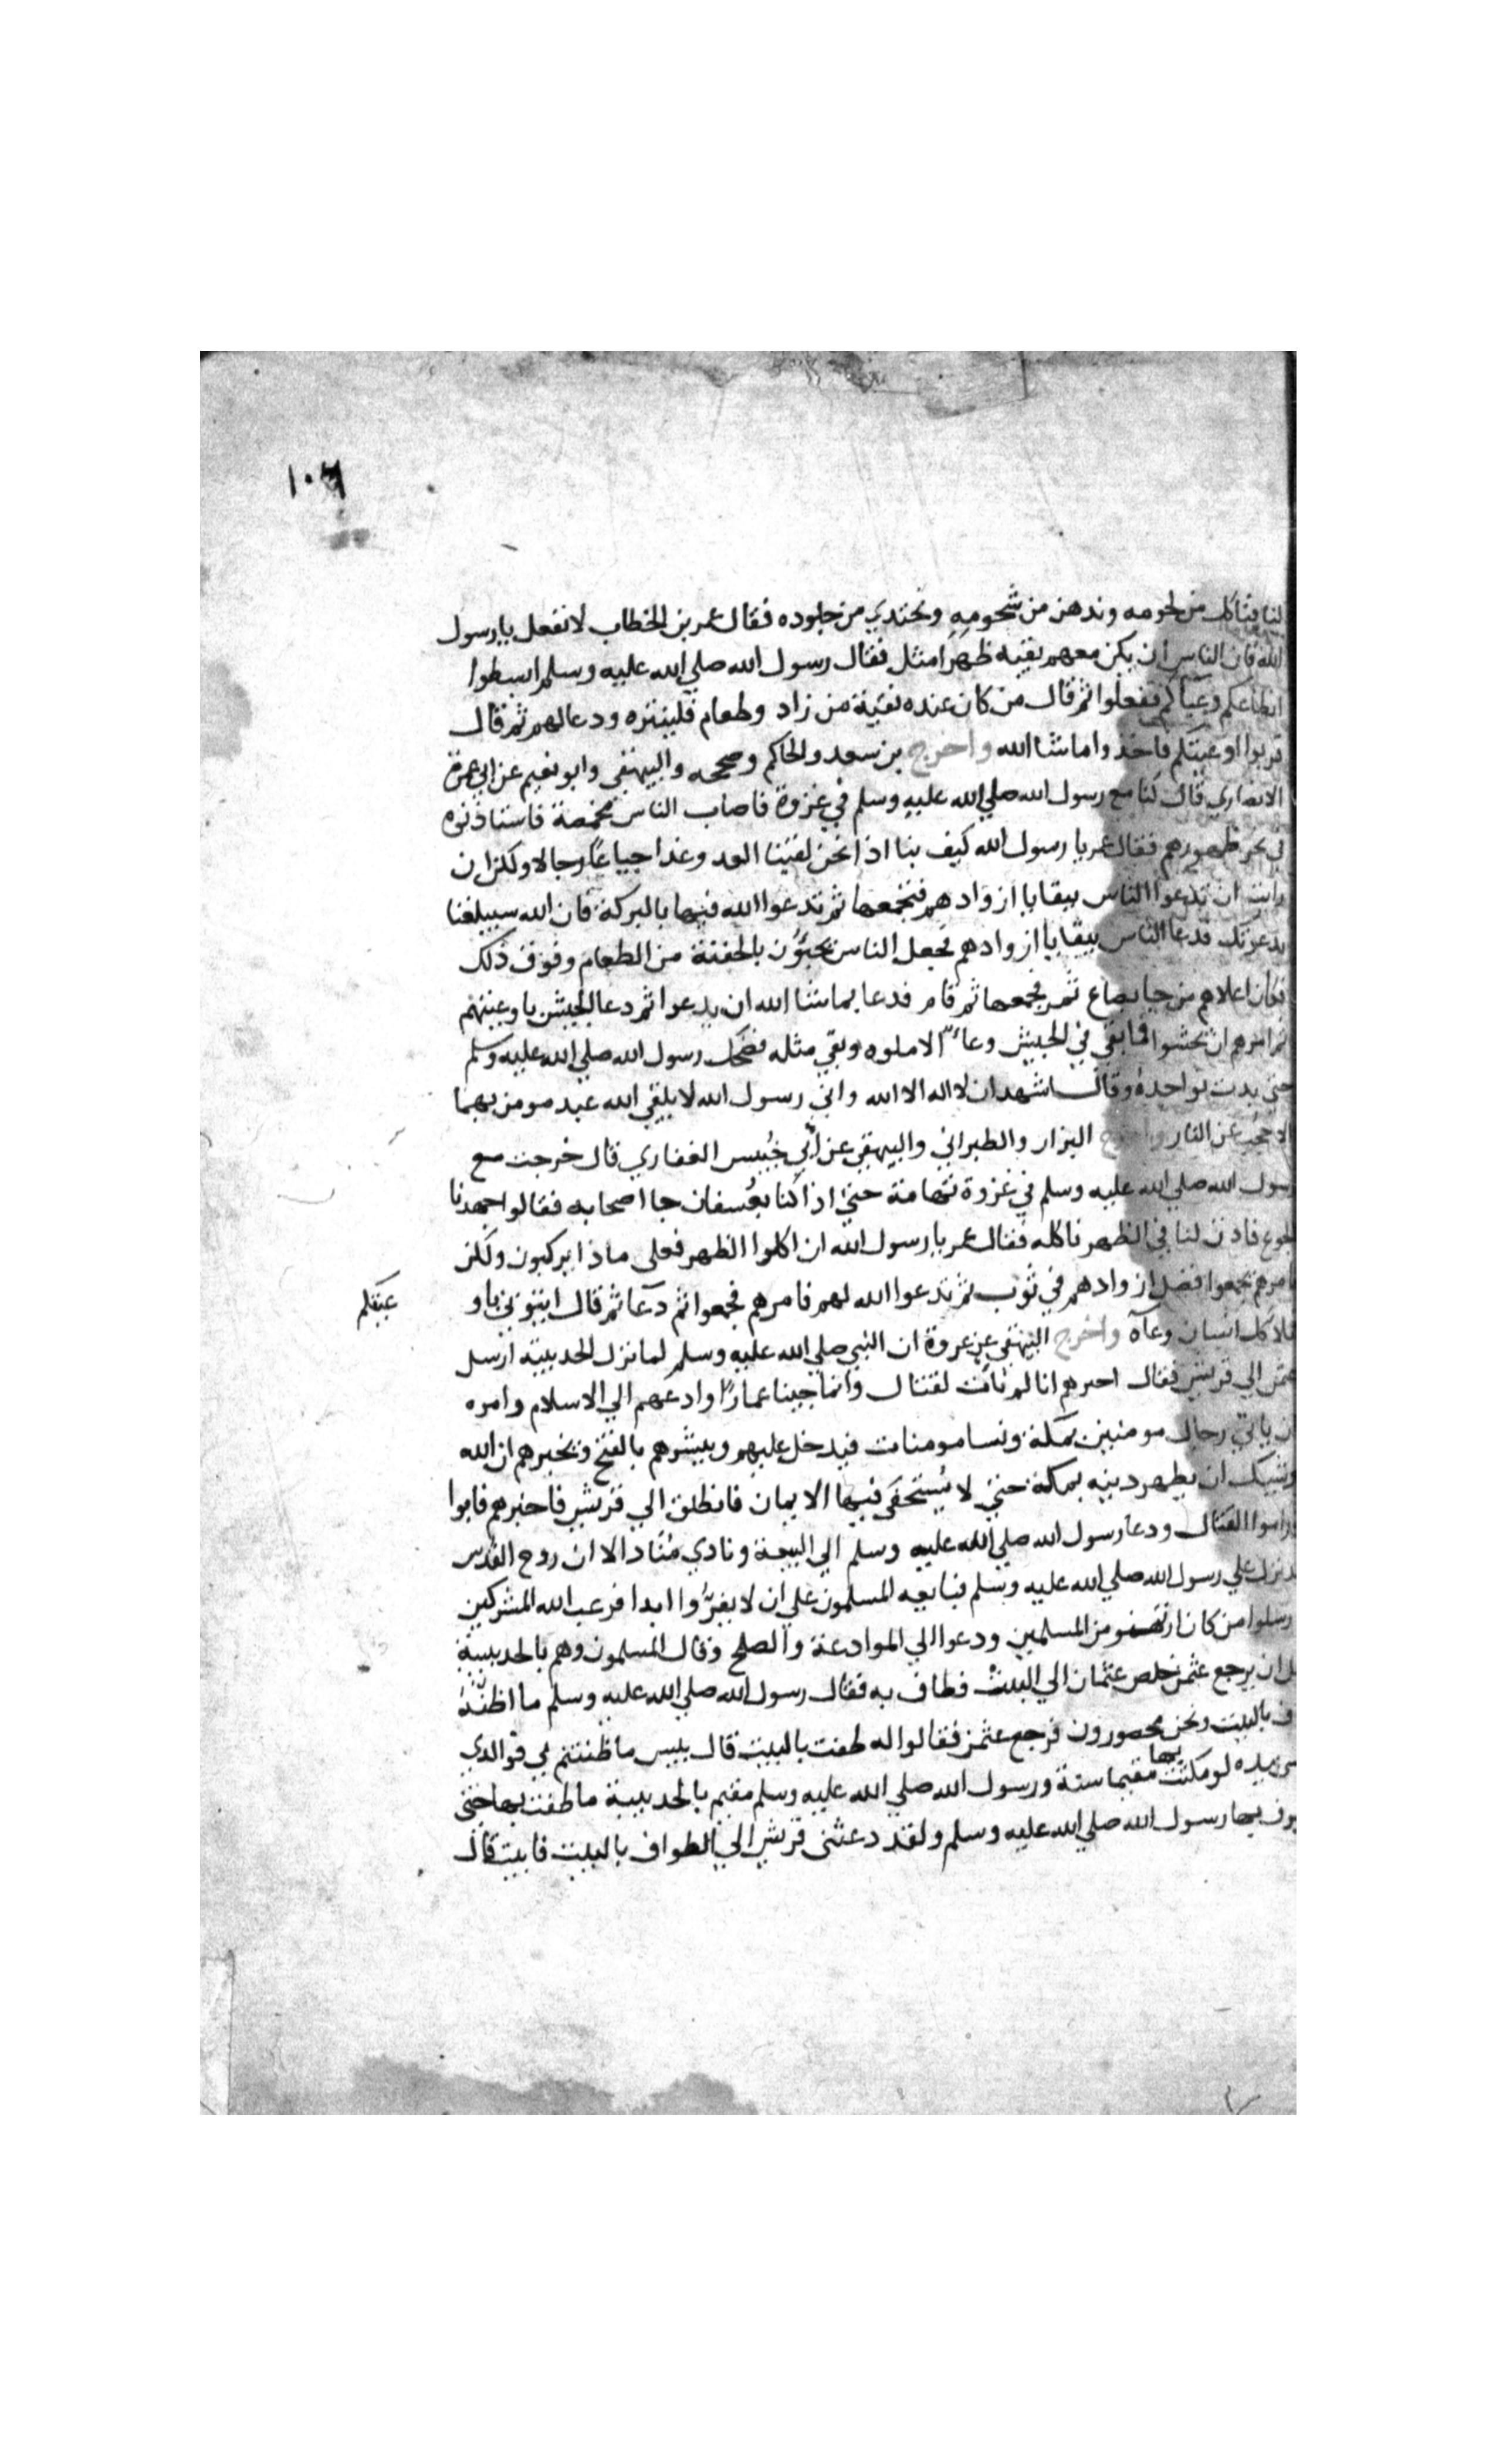 ١٠٦
لنا فناكل من لحومه وندهن من شحومه ونحتدي من جلوده فقال عمر بن الخطاب لا تفعل يا رسول
الله فان الناس ان يكن معهم بقية ظهر امثل فقال رسول الله صلي الله عليه وسلم ابسطوا
انطاعكم وعباكم ففعلوا ثم قال من كان عنده بقية من زاد وطعام فلينثره ودعا لهم ثم قال
قربوا اوعيتكم فاخذوا ما شا الله واخرج بن سعد والحاكم وصححه والبيهقي وابو نعيم عن ابي عمرة
الانصاري قال كنا مع رسول الله صلي الله عليه وسلم في غزوة فاصاب الناس مخمصة فاستاذنوه
في نحر ظهورهم فقال عمر يا رسول الله كيف بنا اذا نحن لقينا العدو غدا جياعا رجالا ولكن ان
رايت ان تدعوا الناس ببقايا ازوادهم فتجمعها ثم تدعوا الله فيها بالبركة فان الله سيبلغنا
بدعوتك فدعا الناس ببقايا ازوادهم فجعل الناس يجيؤن بالحفنة من الطعام وفوق ذلك
فكان اعلاهم من جا بصاع تمر فجمعها ثم قام فدعا بما شا الله ان يدعوا ثم دعا الجيش باوعيتهم
ثم امرهم ان يحثوا فما بقي في الجيش وعاء الا ملوه وبقي مثله فضحك رسول الله صلي الله عليه وسلم
حتي بدت نواجده وقال اشهد ان لا اله الا الله واني رسول الله لا يلقي الله عبد مومن بهما
الا حجب عن النار واخرج البزار والطبراني والبيهقي عن ابي خنيس الغفاري قال خرجت مع
رسول الله صلي الله عليه وسلم في غزوة تهامة حتي اذا كنا بعسفان جا اصحابه فقالوا جهدنا
الجوع فاذن لنا في الظهر ناكله فقال عمر يا رسول الله ان اكلوا الظهر فعلي ماذا يركبون ولكن
فامرهم يجمعوا فضل ازوادهم في ثوب ثم تدعوا الله لهم فامرهم فجمعوا ثم دعا ثم قال ايتوني باو
عيتكم
فملا كل انسان وعآه واخرج البيهقي عن عروة ان النبي صلي الله عليه وسلم لما نزل الحديبية ارسل
عثمن الي قريش فقال اخبرهم انا لم نات لقتال وانما جينا عمارا وادعهم الي الاسلام وامره
ان ياتي رجال مومنين بمكة ونسا مومنات فيدخل عليهم ويبشرهم بالفتح ويخبرهم ان الله
وشيك ان يظهر دينه بمكة حتي لا يستخفي فيها الايمان فانطلق الي قريش فاخبرهم فابوا
وراموا القتال ودعا رسول الله صلي الله عليه وسلم الي البيعة ونادي مناد الا ان روح القدس
قد نزل علي رسول الله صلي الله عليه وسلم فبايعه المسلمون علي ان لا يفروا ابدا فرعب الله المشركين
فارسلوا من كان ارتهنو من المسلمين ودعوا الي الموادعة والصلح وقال المسلمون وهم بالحديبية
قبل ان يرجع عثمن خلص عثمان الي البيت فطاف به فقال رسول الله صلي الله عليه وسلم ما اظنه
طاف بالبيت ونحن محصورون فرجع عثمن فقالوا له طفت بالبيت قال بيس ما ظننتم بي فوالدي
نفسي بيده لو مكثت بها مقيما سنة ورسول الله صلي الله عليه وسلم مقيم بالحديبية ما طفت بها حتي
يطوف بها رسول الله صلي الله عليه وسلم ولقد دعتني قريش الي الطواف بالبيت فابيت قال